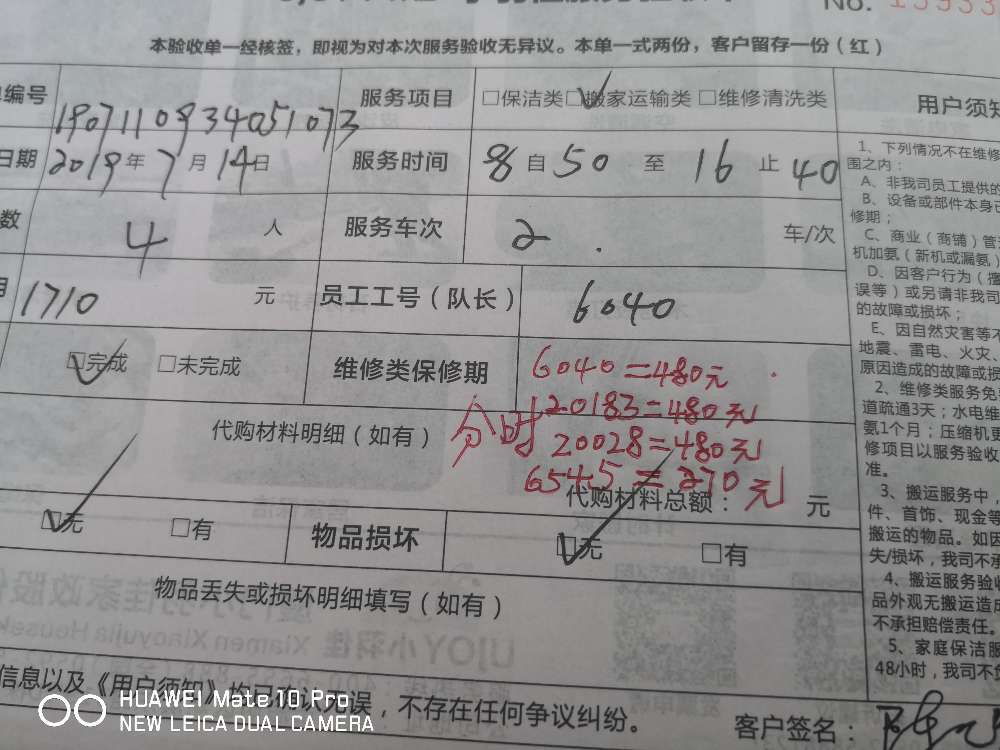 No. 15933
本验收单一经核签，即视为对本次服务验收无异议。本单一式两份，客户留存一份（红）
编号 1907110934051073 服务项目 □保洁类 ☑搬家运输类 □维修清洗类
日期 2019年7月14日 服务时间 8自50至16止40
数 4人 服务车次 2. 车/次
1710元 员工工号（队长） 6040
☑完成 □未完成 维修类保修期 6040=480元
20183=480元
代购材料明细（如有） 分时 20028=480元
6545=270元
代购材料总额： 元
☑无 □有 物品损坏 ☑无 □有
物品丢失或损坏明细填写（如有）
信息以及《用户须知》均已确认无误，不存在任何争议纠纷。
客户签名：
用户须知
1、下列情况不在维修
围之内：
A、非我司员工提供的
B、设备或部件本身已
修期；
C、商业（商铺）管
机加氨（新机或漏氨）
D、因客户行为（擅
误等）或另请非我司
的故障或损坏；
E、因自然灾害等不
地震、雷电、火灾、
原因造成的故障或损
2、维修类服务免
道疏通3天；水电维
氨1个月；压缩机更
修项目以服务验收
准。
3、搬运服务中，
件、首饰、现金等
搬运的物品。如因
失/损坏，我司不承
4、搬运服务验收
品外观无搬运造成
不承担赔偿责任。
5、家庭保洁服
48小时，我司不
HUAWEI Mate 10 Pro
NEW LEICA DUAL CAMERA